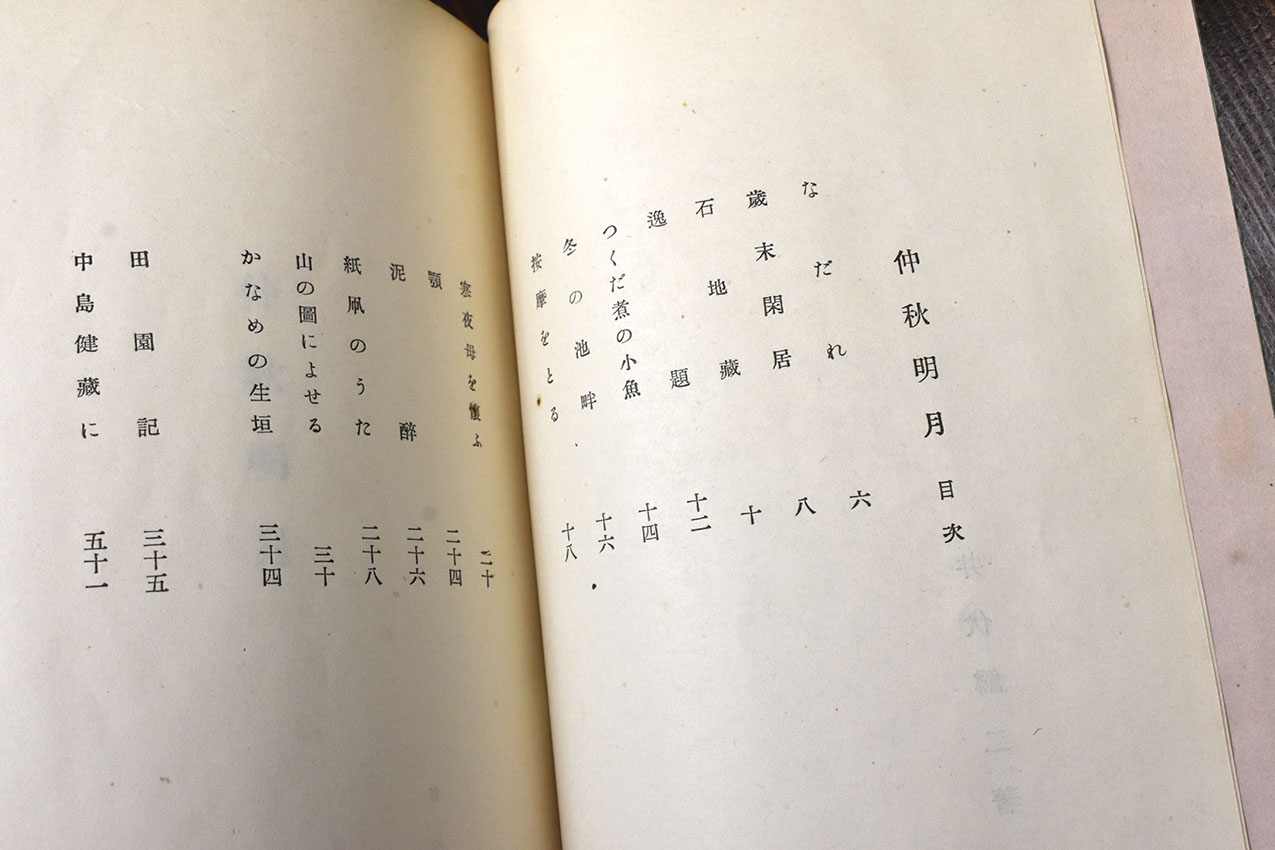 仲秋明月 目次
なだれ 六
歲末閑居 八
石地藏 十
逸題 十二
つくだ煮の小魚 十四
冬の池畔 十六
按摩をとる 十八
寒夜母を懷ふ 二十
顎 二十四
泥醉 二十六
紙凧のうた 二十八
山の圖によせる 三十
かなめの生垣 三十四
田園記 三十五
中島健藏に 五十一
井伏鱒二著